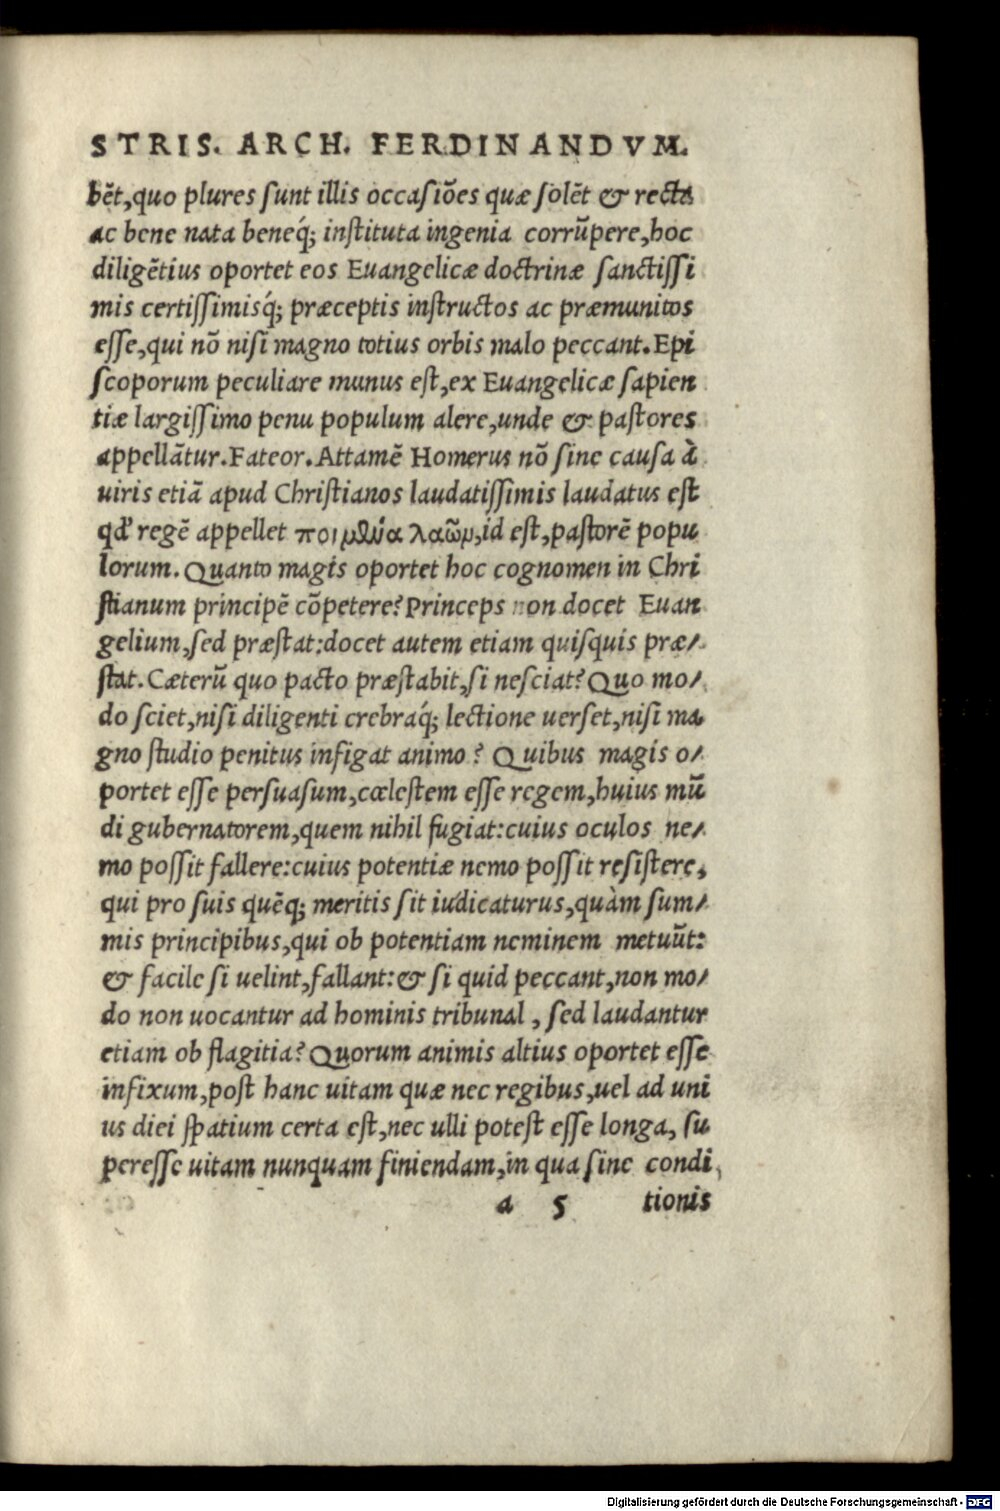 STRIS. ARCH. FERDINANDVM.
bẽt,quo plures ſunt illis occaſiões quæ ſolẽt & recta
ac bene nata beneq́; inſtituta ingenia corrũpere,hoc
diligẽtius oportet eos Euangelicæ doctrinæ ſanctiſſi
mis certiſſimisq́; præceptis inſtructos ac præmunitos
eſſe,qui nõ niſi magno totius orbis malo peccant.Epi
ſcoporum peculiare munus eſt,ex Euangelicæ ſapien
tiæ largiſſimo penu populum alere,unde & paſtores
appellãtur.Fateor.Attamẽ Homerus nõ ſine cauſa à
uiris etiã apud Chriſtianos laudatiſſimis laudatus eſt
qđ regẽ appellet ποιμένα λαῶν,id eſt,paſtorẽ popu
lorum.Quanto magis oportet hoc cognomen in Chri
ſtianum principẽ cõpetere?Princeps non docet Euan
gelium,ſed præſtat:docet autem etiam quiſquis præ/
ſtat.Cæterũ quo pacto præſtabit,ſi neſciat?Quo mo/
do ſciet,niſi diligenti crebraq́; lectione uerſet,niſi ma
gno ſtudio penitus infigat animo? Quibus magis o/
portet eſſe perſuaſum,cœleſtem eſſe regem,huius mũ
di gubernatorem,quem nihil fugiat:cuius oculos ne/
mo poſſit fallere:cuius potentiæ nemo poſſit reſiſtere,
qui pro ſuis quẽq; meritis ſit iudicaturus,quàm ſum/
mis principibus,qui ob potentiam neminem metuũt:
& facile ſi uelint,fallant:& ſi quid peccant,non mo/
do non uocantur ad hominis tribunal, ſed laudantur
etiam ob flagitia?Quorum animis altius oportet eſſe
infixum,poſt hanc uitam quæ nec regibus,uel ad uni
us diei ſpatium certa eſt,nec ulli poteſt eſſe longa, ſu
pereſſe uitam nunquam finiendam,in qua ſine condi,
a 5 tionis
Digitalisierung gefördert durch die Deutsche Forschungsgemeinschaft - DFG